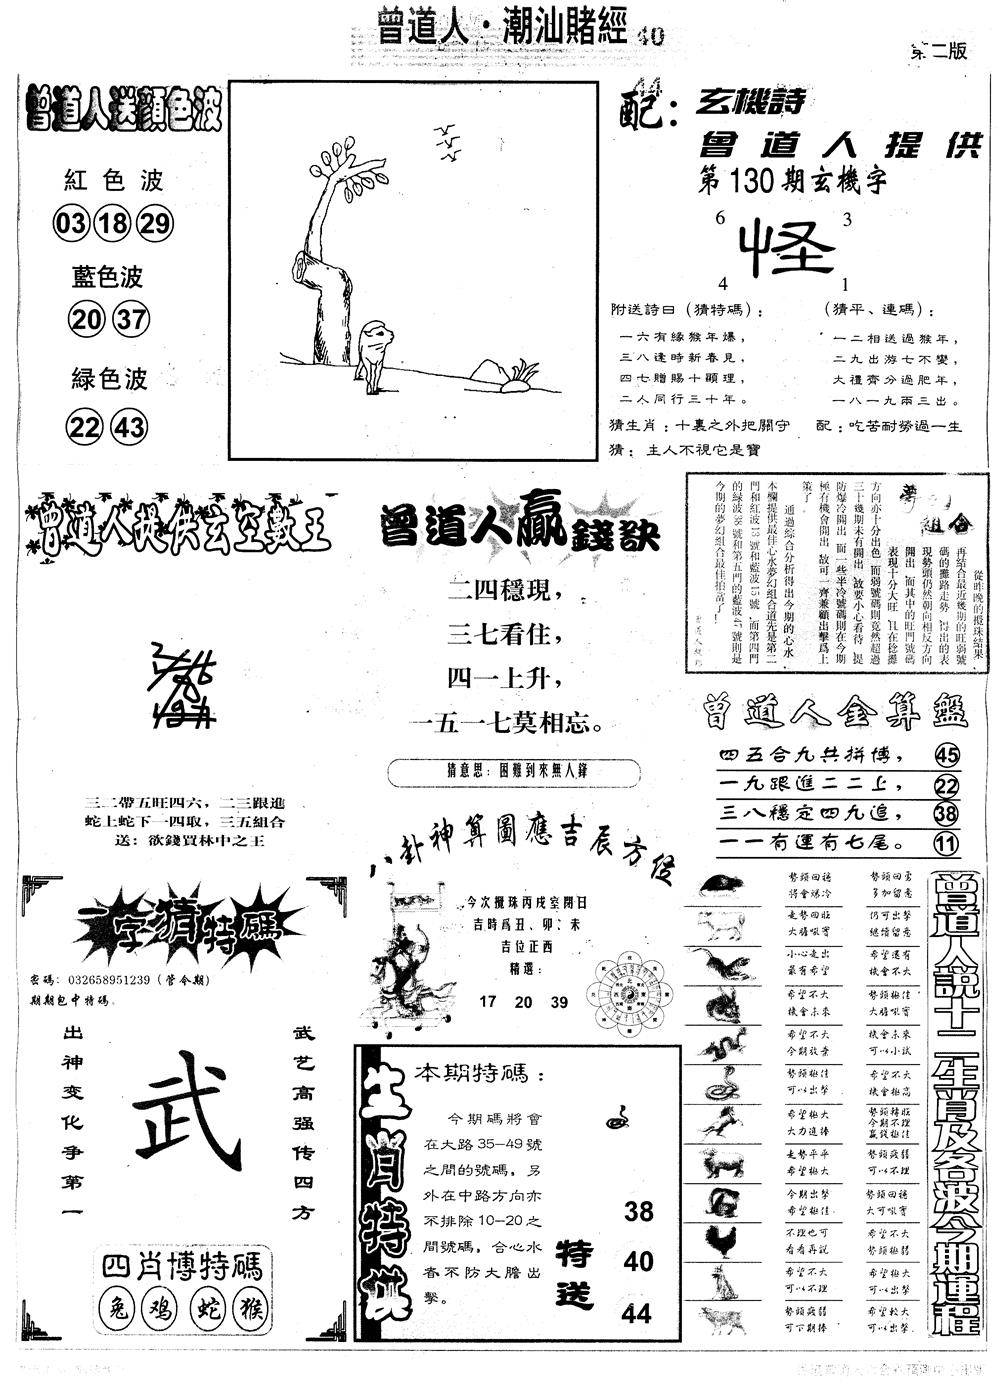 曾道人·潮汕賭經 40
第二版
曾道人送顔色波
紅色波
03 18 29
藍色波
20 37
緑色波
22 43
44
配：
玄機詩
曾道人提供
第130期玄機字
6 3
怪
4 1
附送詩曰（猜特碼）：
一六有緣猴年爆，
三八逢時新春見，
四七贈賜十顯理，
二人同行三十年。
（猜平、連碼）：
一二相送過猴年，
二九出游七不變，
大禮齊分過肥年，
一八一九兩三出。
猜生肖：十裏之外把關守
配：吃苦耐勞過一生
猜：主人不視它是寶
曾道人提供玄空數王
三二帶五旺四六，二三跟進
蛇上蛇下一四取，三五組合
送：欲錢買林中之王
曾道人贏錢訣
二四穩現，
三七看住，
四一上升，
一五一七莫相忘。
猜意思：困難到來無人鋒
組合
從昨晚的攪珠結果
再結合最近幾期的旺弱號
碼的攤路走勢
現勢頭仍然朝向相反方向
開出，而其中的旺門號碼
表現十分大旺
方向亦十分出色，而弱號碼則竟然超過
三十幾期未有開出，故要小心看待，提
防爆冷開出，而一些半冷號碼則在今期
極有機會開出，故可一齊兼顧出擊爲上
策了。
通過綜合分析得出今期的心水，
本欄提供最佳心水夢幻組合道先是第二
門和紅波13號和藍波15號，而第四門
的緑波38號和第五門的藍波47號則是
今期的夢幻組合最佳拍當了！
曾道人金算盤
四五合九共拼博， 45
一九跟進二二上， 22
三八穩定四九追， 38
一一有運有七尾。 11
八卦神算圖應吉辰方位
今次攪珠丙戌室閉日
吉時爲丑、卯、未
吉位正西
精選：
17 20 39
一字猜特碼
密碼：032658951239（管今期）
期期包中特碼。
出神变化争第一
武
武艺高强传四方
四肖博特碼
兔 鸡 蛇 猴
生肖特供
本期特碼：
今期碼將會
在大路35—49號
之間的號碼，另
外在中路方向亦
不排除10—20之
間號碼，合心水
者不防大膽出
擊。
特送
38
40
44
曾道人説十二生肖及各波今期運程
勢頭回穩
將會爆冷
勢頭回勇
多加留意
走勢回旺
仍可出擊
繼續留意
小心走出
最有希望
希望還有
機會不大
希望不大
機會未來
勢頭極佳
希望不大
今期放棄
機會未來
可以小試
勢頭極佳
可以出擊
希望不大
機會極高
希望極大
大力追捧
勢頭轉旺
今期不理
贏錢極佳
走勢平平
希望極大
勢頭疲弱
可以不理
今期出擊
希望極佳
勢頭回穩
不理也可
看看再説
希望不大
勢頭極弱
希望不大
可以不理
希望極大
可以出擊
勢頭疲弱
可下期捧
希望較大
可以出擊